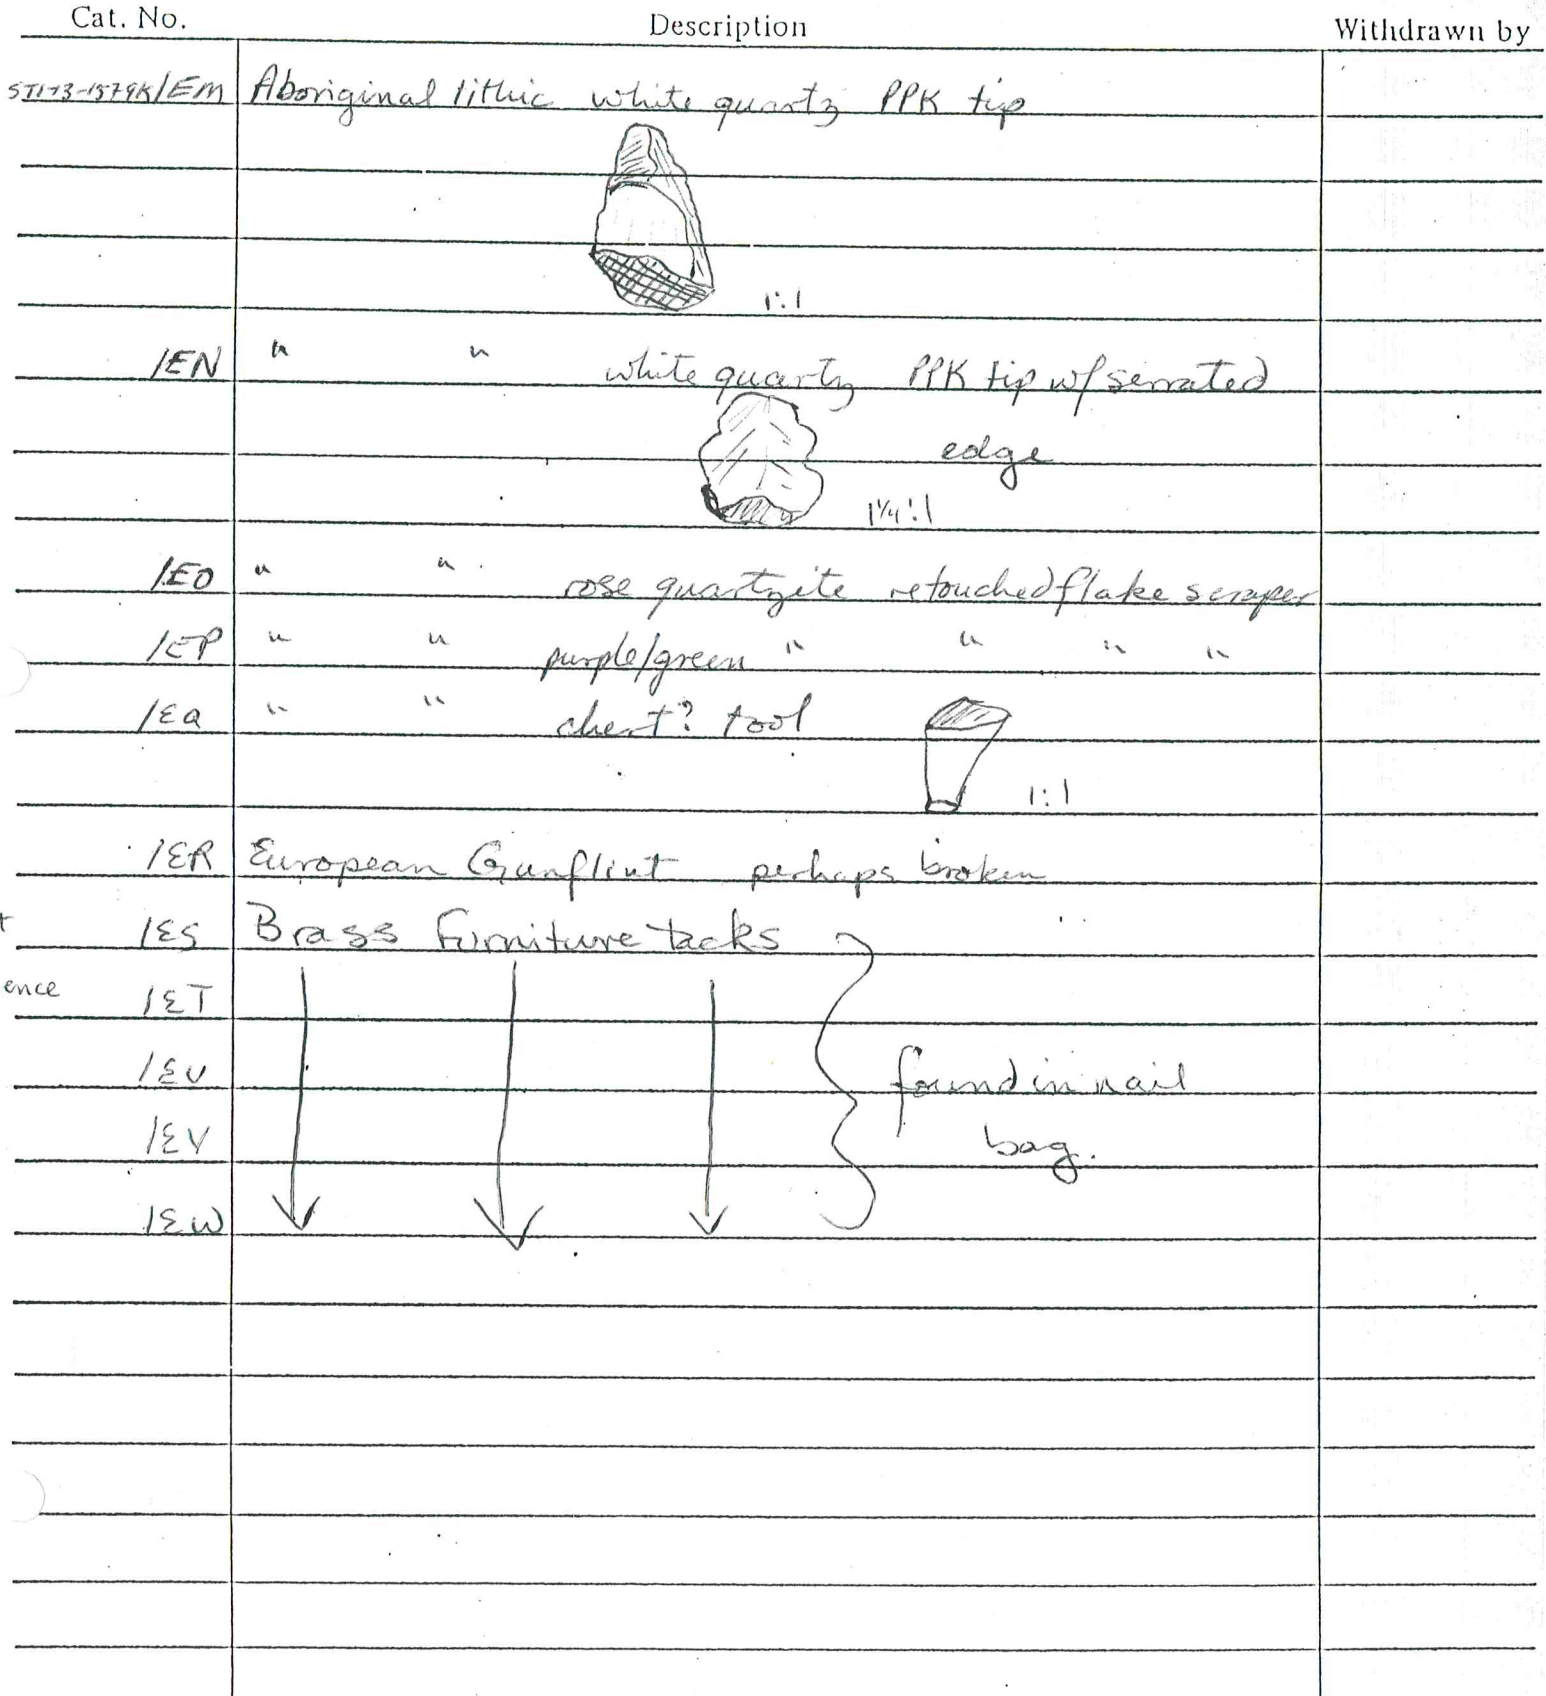 Cat. No. Description Withdrawn by
ST1-13-1579K/EM Aboriginal lithic white quartz PPK tip
1:1
/EN " " white quartz PPK tip w/ serrated
edge
1¼:1
/EO " " rose quartzite retouched flake scraper
/EP " " purple/green " " " "
/EQ " " chert? tool
1:1
/ER European Gunflint perhaps broken
/ES Brass Furniture tacks
ence /ET
/EU found in nail
/EV bag.
/EW